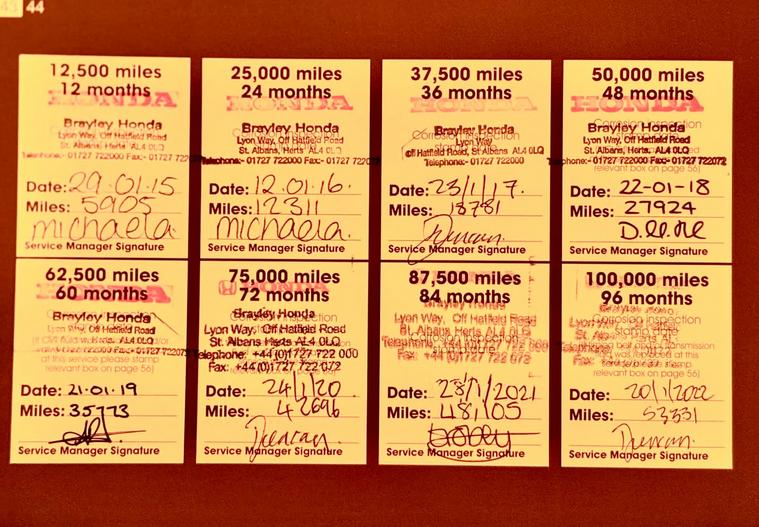 43 44
12,500 miles
12 months
HONDA
Brayley Honda
Lyon Way, Off Hatfield Road
St. Albans, Herts. AL4 0LQ
Telephone:- 01727 722000 Fax:- 01727 722
Date: 29.01.15
Miles: 5905
Michaela
Service Manager Signature
25,000 miles
24 months
HONDA
Brayley Honda
Lyon Way, Off Hatfield Road
St. Albans, Herts. AL4 0LQ
Telephone:- 01727 722000 Fax:- 01727 722072
Date: 12.01.16.
Miles: 12311
Michaela.
Service Manager Signature
37,500 miles
36 months
HONDA
Corrosion inspection
Brayley Honda
Lyon Way
Off Hatfield Road, St. Albans, AL4 0LQ
Telephone:- 01727 722000
Date: 23/1/17.
Miles: 18781
Duncan
Service Manager Signature
50,000 miles
48 months
HONDA
Corrosion inspection
Brayley Honda
Lyon Way, Off Hatfield Road
St. Albans, Herts. AL4 0LQ
Telephone:- 01727 722000 Fax:- 01727 722072
relevant box on page 56)
Date: 22-01-18
Miles: 27924
Service Manager Signature
62,500 miles
60 months
HONDA
Brayley Honda
Lyon Way, Off Hatfield Road
St. Albans, Herts. AL4 0LQ
at this service please stamp
relevant box on page 56)
Date: 21.01.19
Miles: 35773
Service Manager Signature
75,000 miles
72 months
HONDA
Corrosion inspection
Brayley Honda
Lyon Way, Off Hatfield Road
St. Albans Herts AL4 0LQ
Telephone: +44(0)1727 722 000
Fax: +44(0)1727 722 072
Date: 24/1/20
Miles: 42696
Duncan.
Service Manager Signature
87,500 miles
84 months
Brayley Honda
Lyon Way, Off Hatfield Road
St. Albans Herts AL4 0LQ
Telephone: +44(0)1727 722 000
Fax: +44(0)1727 722 072
Date: 28/1/2021
Miles: 48,105
Bobby
Service Manager Signature
100,000 miles
96 months
Corrosion inspection
stamp date
relevant box on page 56)
Date: 20/1/2022
Miles: 53331
Duncan.
Service Manager Signature